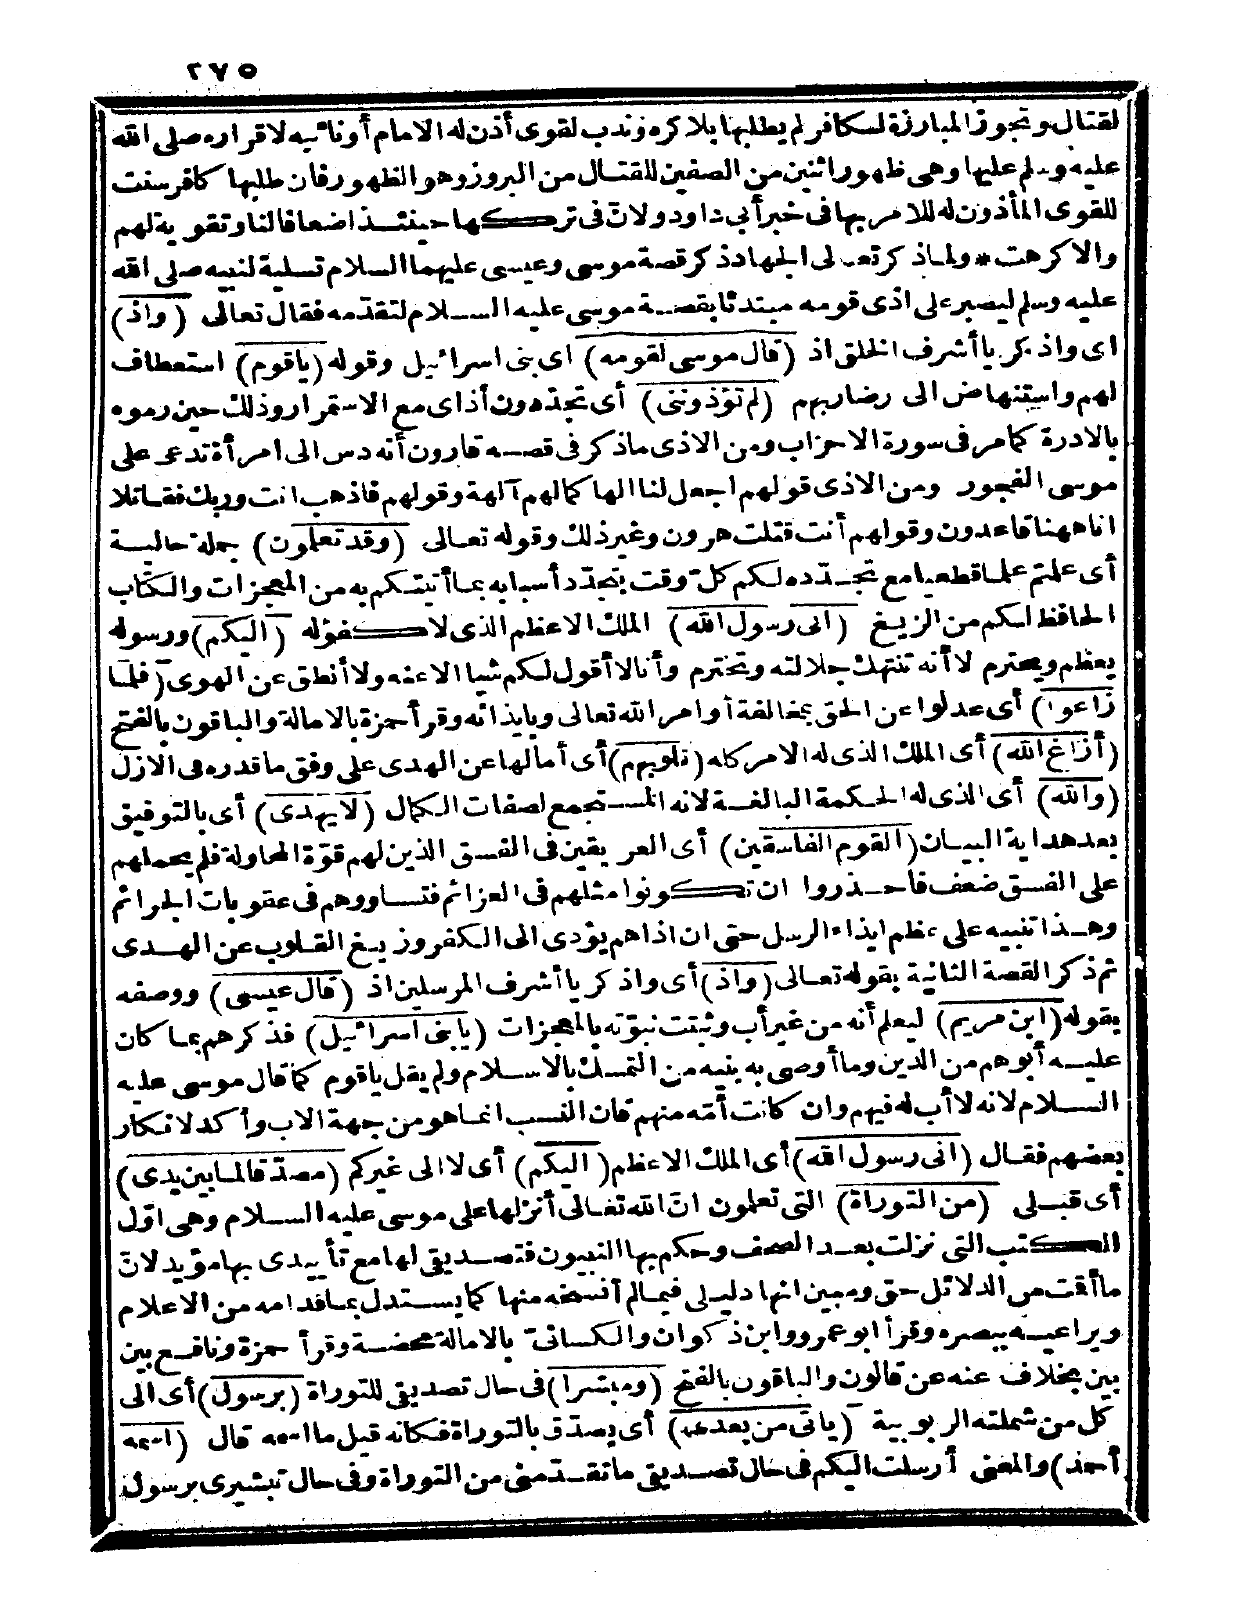 ٢٧٥
لقتال وتجوز المبارزة لكافر لم يطلبها بلا كره وندب لقوى أذن له الامام أو نائبه لاقراره صلى الله
عليه وسلم عليها وهى ظهور اثنين من الصفين للقتال من البروز وهو الظهور فان طلبها كافر سنت
للقوى المأذون له للامر بها فى خبر أبي داود ولانّ فى تركها حينئذ اضعافا لنا وتقوية لهم
والا كرهت * ولما ذكر تعالى الجهاد ذكر قصة موسى وعيسى عليهما السلام تسلية لنبيه صلى الله
عليه وسلم ليصبر على اذى قومه مبتدئا بقصة موسى عليه السلام لتقدّمه فقال تعالى (واذ)
اى واذكر يا أشرف الخلق اذ (قال موسى لقومه) اى بنى اسرائيل وقوله (ياقوم) استعطاف
لهم واستنهاض الى رضا ربهم (لم تؤذوننى) أى تجدّدون أذاى مع الاستمرار وذلك حين رموه
بالادرة كما مر فى سورة الاحزاب ومن الاذى ما ذكر فى قصة قارون أنه دس الى امرأة تدعى على
موسى الفجور ومن الاذى قولهم اجعل لنا الها كما لهم آلهة وقولهم فاذهب انت وربك فقاتلا
انا ههنا قاعدون وقولهم أنت قتلت هرون وغير ذلك وقوله تعالى (وقد تعلمون) جملة حالية
أى علمتم علما قطعيا مع تجدّده لكم كلّ وقت بتجدّد أسبابه بما أتيتكم به من المعجزات والكتاب
الحافظ لكم من الزيغ (انى رسول الله) الملك الاعظم الذى لا كفؤله (اليكم) ورسوله
يعظم ويحترم لا أنه تنتهك جلالته وتخترم وأنا لا أقول لكم شيا الا عنه ولا أنطق عن الهوى (فلما
زاغوا) أى عدلوا عن الحق بمخالفة أوامر الله تعالى وبايذائه وقرأ حمزة بالامالة والباقون بالفتح
(أزاغ الله) أى الملك الذى له الامر كله (قلوبهم) أى أمالها عن الهدى على وفق ما قدره فى الازل
(والله) أى الذى له الحكمة البالغة لانه المستجمع لصفات الكمال (لا يهدى) أى بالتوفيق
بعد هداية البيان (القوم الفاسقين) أى العريقين فى الفسق الذين لهم قوّة المحاولة فلم يحملهم
على الفسق ضعف فاحذروا ان تكونوا مثلهم فى العزائم فتساووهم فى عقوبات الجرائم
وهذا تنبيه على عظم ايذاء الرسل حتى ان اذاهم يؤدى الى الكفر وزيغ القلوب عن الهدى
ثم ذكر القصة الثانية بقوله تعالى (واذ) أى واذكر يا أشرف المرسلين اذ (قال عيسى) ووصفه
بقوله (ابن مريم) ليعلم أنه من غير أب وثبتت نبوّته بالمعجزات (يابنى اسرائيل) فذكرهم بما كان
عليه أبوهم من الدين وما أوصى به بنيه من التمسك بالاسلام ولم يقل ياقوم كما قال موسى عليه
السلام لانه لا أب له فيهم وان كانت أمّه منهم فان النسب انما هو من جهة الاب وأكد لانكار
بعضهم فقال (انى رسول الله) أى الملك الاعظم (اليكم) أى لا الى غيركم (مصدّقا لما بين يدى)
أى قبلى (من التوراة) التى تعلمون انّ الله تعالى أنزلها على موسى عليه السلام وهى اوّل
الكتب التى نزلت بعد الصحف وحكم بها النبيون فتصديقى لها مع تأييدى بها مؤيد لانّ
ما أقت من الدلائل حق ومبين انها دليلى فيما لم أنسخه منها كما يستدل بما قدامه من الاعلام
ويراعيه ببصره وقرأ ابو عمرو وابن ذكوان والكسائىّ بالامالة محضة وقرأ حمزة ونافع بين
بين بخلاف عنه عن قالون والباقون بالفتح (ومبشرا) فى حال تصديقى للتوراة (برسول) أى الى
كل من شملته الربوبية (يأتى من بعدى) أى يصدّق بالتوراة فكانه قيل ما اسمه قال (اسمه
أحمد) والمعنى أرسلت اليكم فى حال تصديقى ما تقدّمنى من التوراة وفى حال تبشيرى برسول